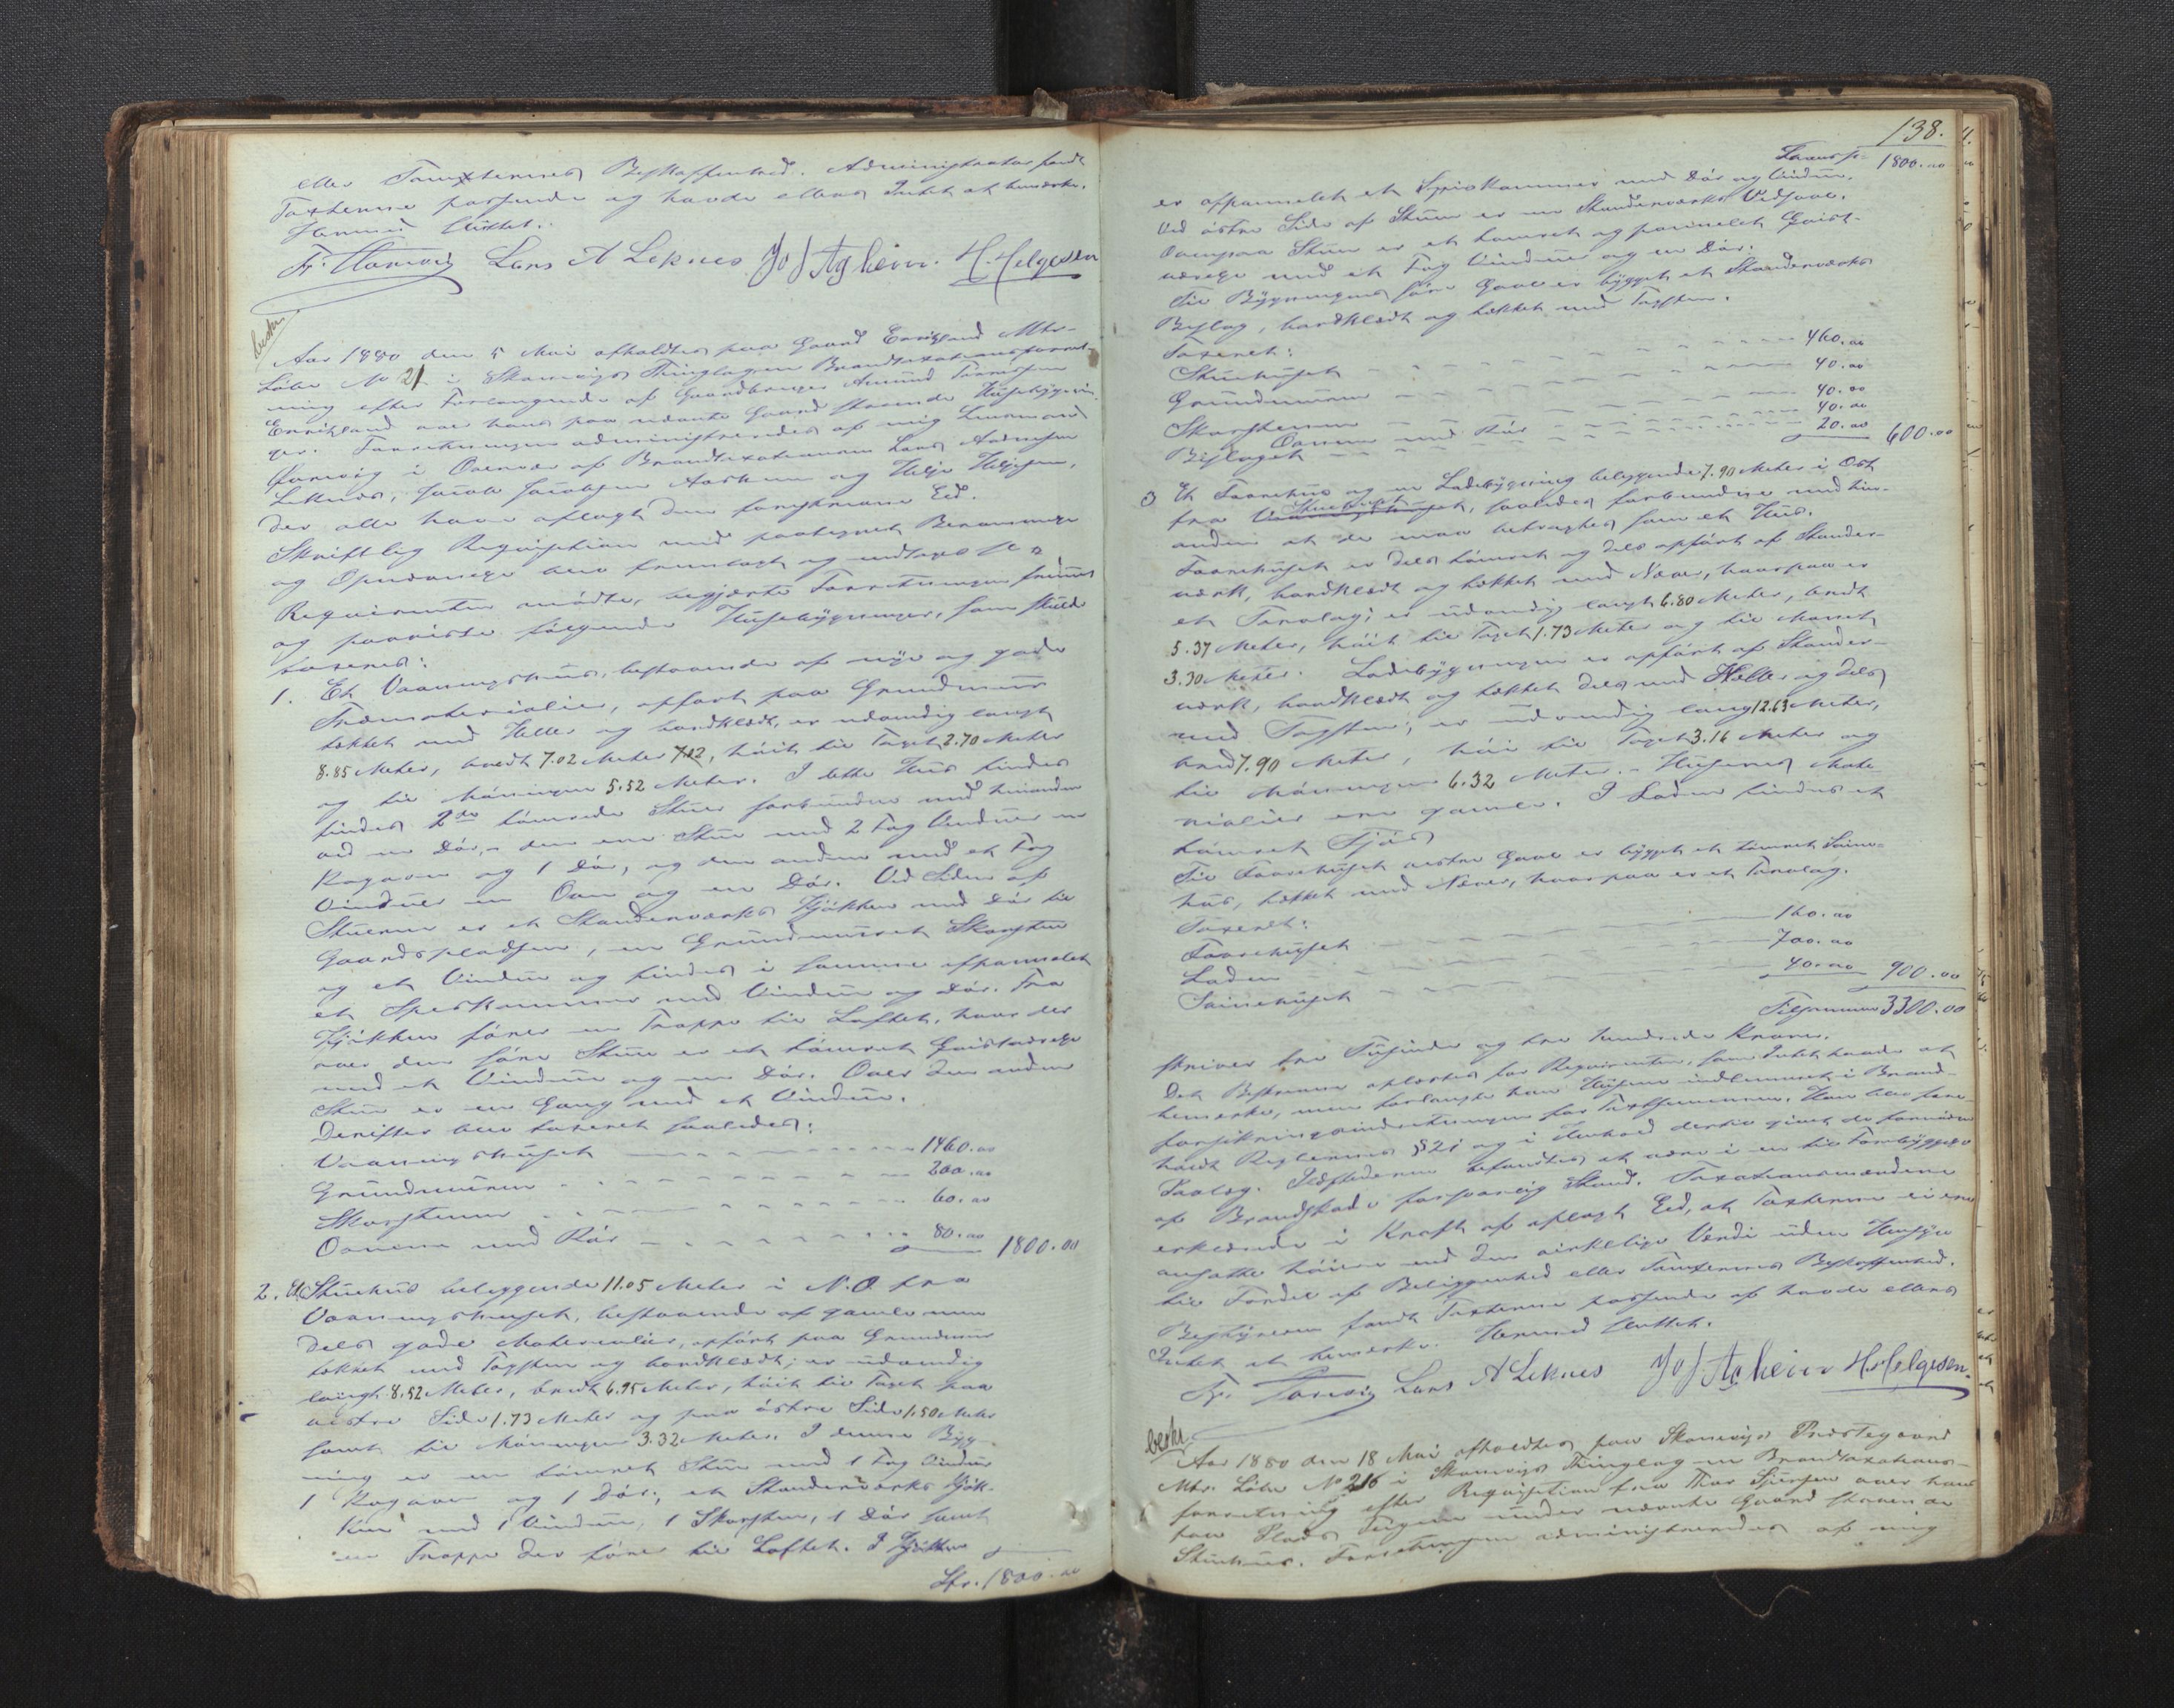 eller Tomternes Beskaffenhed. Administrator fandt
Taxterne passende og havde ellers Intet at bemærke.
Hermed sluttet.
Fr. Hamwig Lars A Leknes J J Agheim. H. Helgesen
beskr
Aar 1880 den 5 Mai afholdtes paa Gaard Mtr-
Løbe No 21 i Skonevigs Thinglag en Brandtaxationsforret-
ning efter Forlangende af Gaardbruger Amund
over hans paa nævnte Gaard staaende Husebygnin-
ger. Forretningen administreredes af mig Lensmand
i Overvær af Brandtaxationsmænd Lars Andersen
Leknes, Jacob Jacobsen og Helge Helgesen,
der alle have aflagt den foreskrevne Ed.
Skriftlig Reqvisition med paategnet Berammelse
og Opnævnelse blev fremlagt og indtages
Reqvirenten mødte, begjærte Forretningen fremmet
og paaviste følgende Husebygninger, som skulde
taxeres:
1. Et Vaaningshuus, bestaaende af nye og gode
Træmaterialier, opført paa Grundmuur
tækket med Heller og bordklædt, er udvendig langt
8.85 Meter, bredt 7.02 Meter 7.02, høit til Taget 2.70 Meter
og til Møningen 5.52 Meter. I dette Hus findes
findes 2de tømrede Stuer forbundne med hinanden
ved en Dør, - den ene Stue med 2 Fag Vinduer en
Kogovn og 1 Dør, og den anden med et Fag
Vinduer en Ovn og en Dør. Ved Siden af
Stuerne er et Standerværks Kjøkken med Dør til
Gaardspladsen, en Grundmuret Skorsten
og et Vindue og findes i samme afpanelet
et Speskammer med Vindue og Dør. Fra
Kjøkken fører en Trappe til Loftet, hvor der
over den søre Stue er et tømret Qvistværelse
med et Vindue og en Dør. Over den anden
Stue er en Gang med et Vindue.
Derefter blev taxeret saaledes:
Vaaningshuset 1460.00
Grundmuren 200.00
Skorstenen 60.00
Ovnene med Rør 80.00 1800.00
2. Et Stuehus beliggende 11.05 Meter i N.O fra
Vaaningshuset, bestaaende af gamle men
dels gode Materialier, opført paa Grundmur
tækket med Tagsten og bordklædt; er udvendig
langt 8.52 Meter, bredt 6.95 Meter, høit til Taget paa
vestre Side 1.73 Meter og paa østre Side 1.50 Meter
samt til Møningen 3.32 Meter. I denne Byg-
ning er en tømret Stue med 1 Fag Vinduer
1 Kogovn og 1 Dør; et Standerværks Kjøk-
ken med 1 Vindue, 1 Skorsten, 1 Dør samt
en Trappe der fører til Loftet. I Kjøkken
Lfr. 1800.00
138.
Transp. 1800.00
er afpanelet et Spiskammer med Dør og Vindue.
Ved østre Side af Stuen er en Standerværks Vedskaal.
Ovenpaa Stuen er et tømret og panelet Qvist-
værelse med et Fag Vinduer og en Dør.
Til Bygningens søre Gavl er bygget et Standerværks
Bislag, bordklædt og tækket med Tagsten.
Taxeret:
Stuehuset 460.00
Grundmuren 40.00
Skorstenen 40.00
Ovnen med Rør 40.00
Bislaget 20.00 600.00
3 Et Faarehus og en Ladebygning beliggende 7.90 Meter i Ost
fra Vaaningshuset Stuehuset, saaledes forbundne med hin-
anden at de maa betragtes som et Hus.
Faarehuset er dels tømret og dels opført af Stander-
værk, bordklædt og tækket med Næver, hvorpaa er
et Torvlag; er udvendig langt 6.80 Meter, bredt
5.37 Meter, høit til Taget 1.73 Meter og til Mønet
3.30 Meter. Ladebygningen er opført af Stander-
værk, bordklædt og tækket dels med Heller og dels
med Tagsten; er udvendig lang 12.63 Meter,
bred 7.90 Meter, høi til Taget 3.16 Meter og
til Møningen 6.32 Meter. - Husenes Mate-
rialier ere gamle. I Laden findes et
tømret Fjøs
Til Faarehuset vestre Gavl er bygget et tømret Svine-
hus, tækket med Næver, hvorpaa er et Torvlag.
Taxeret:
Faarehuset 160.00
Laden 700.00
Svinehuset 40.00 900.00
Tilsammen 3300.00
skriver tre Tusinde og tre hundrede Kroner.
Det Beskrevne oplæstes for Reqvirenten, som Intet havde at
bemærke, men forlangte han Husene indlemmet i Brand-
forsikringsindretningen for Taxtsummen. Han blev fore-
holdt Reglernes §21 og i Henhold dertil givet de fornødne
Paalæg. Ildstederne befandtes at være i en til Forebyggelse
af Brandskade forsvarlig Stand. Taxationsmændene
erklærede i Kraft af aflagt Ed, at Taxterne ei ere
ansatte høiere end den virkelige Værdi uden Hensyn
til Fordel af Beliggenhed eller Tomternes Beskaffenhed.
Bestyreren fandt Taxterne passende og havde ellers
Intet at bemærke. Hermed sluttet.
Fr. Lars A Leknes J J Agheim H. Helgesen.
beskr.
Aar 1880 den 18 Mai afholdtes paa Skonevigs Præstegaard
Mtr. Løbe No 216 i Skonevigs Thinglag en Brandtaxations-
forretning efter Reqvisition fra Thor Sjursen over hans
paa Plads under nævnte Gaard staaende
Stuehus. Forretningen administreredes af mig